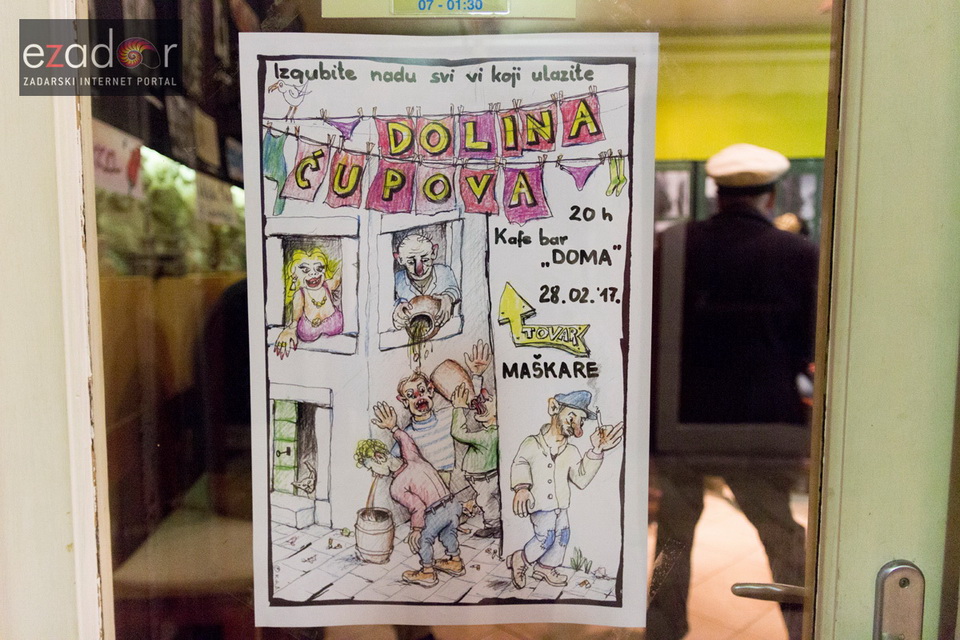 07 - 01:30
ezador
ZADARSKI INTERNET PORTAL
Izgubite nadu svi vi koji ulazite
DOLINA
ĆUPOVA
20 h
Kafe bar
„DOMA"
28.02.'17.
TOVAR
MAŠKARE